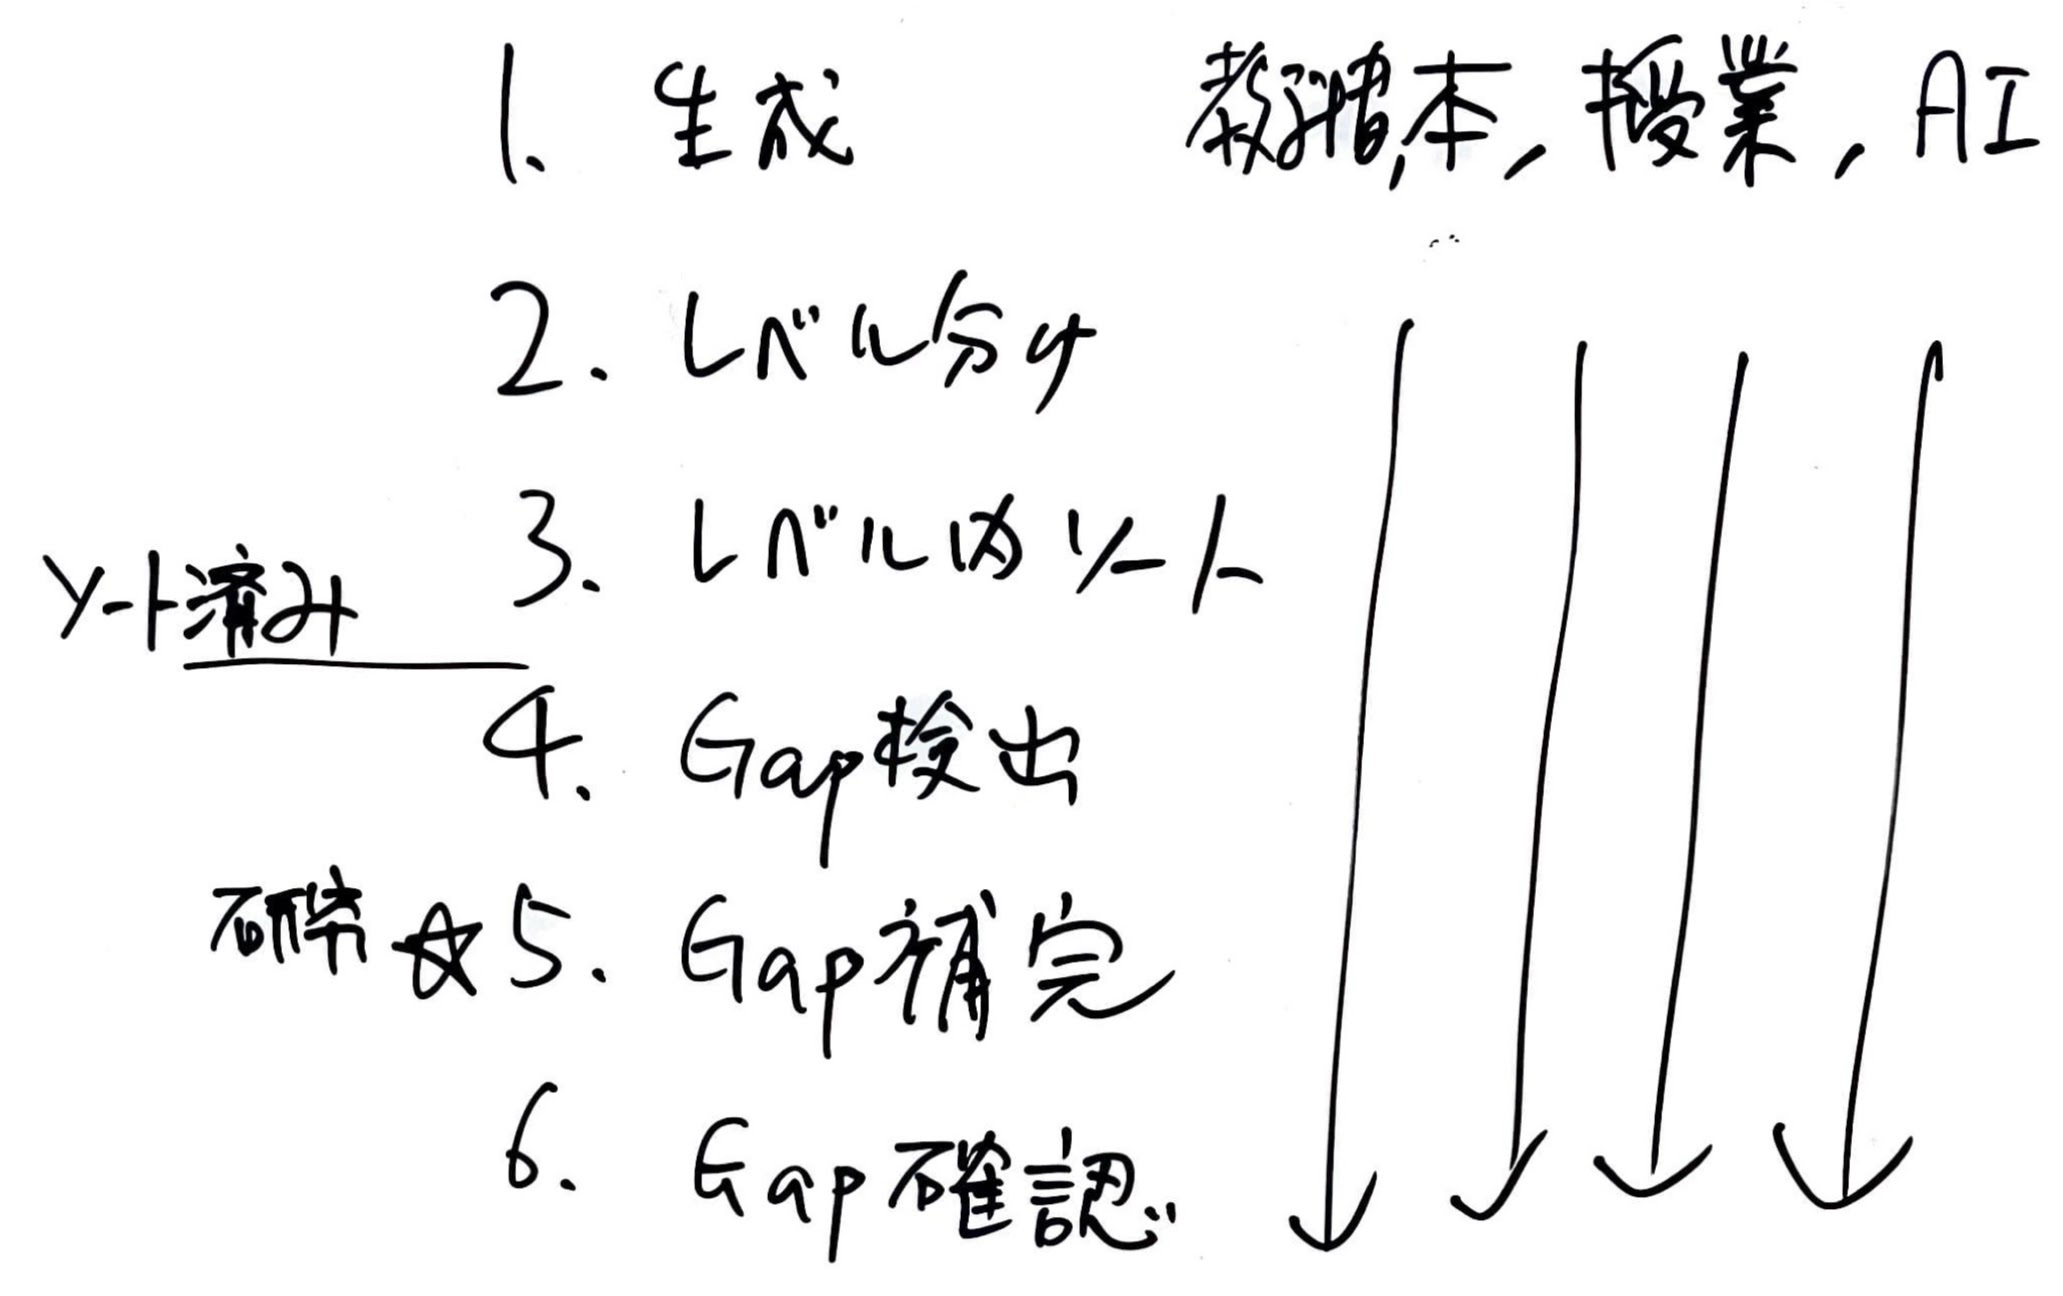 1. 生成 教科書,本,授業,AI
2. レベル分け
3. レベル内ソート
ソート済み
4. Gap検出
研究 ☆ 5. Gap補完
6. Gap確認